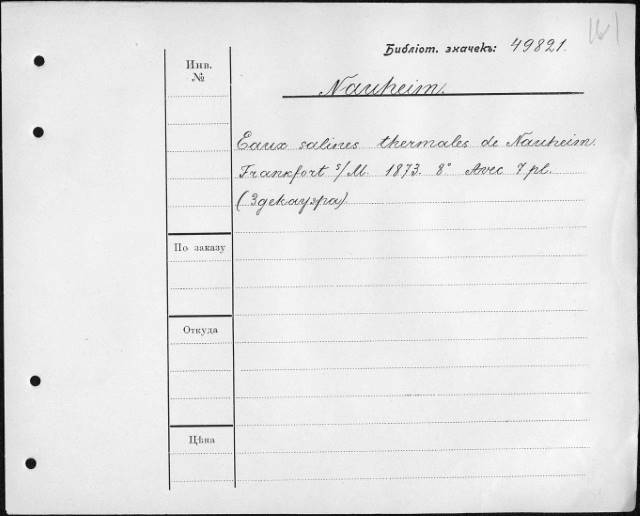 Библіот. значекъ: 49821.
Инв.
№
Nauheim.
Eaux salines thermales de Nauheim.
Frankfort s/M. 1873. 8° Avec 7 pl.
(Здекауэра)
По заказу
Откуда
Цѣна